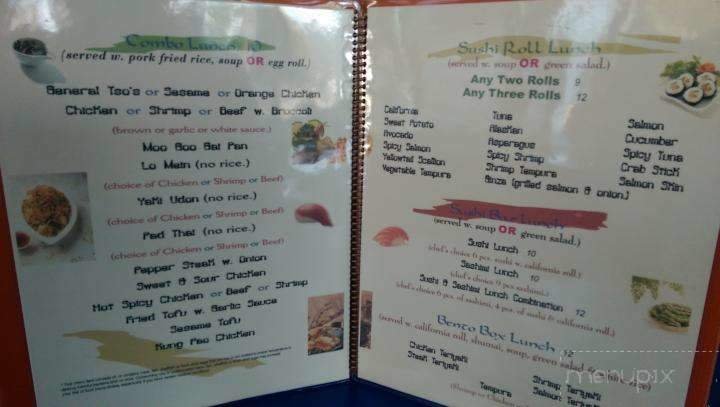 Combo Lunch 10
(served w. pork fried rice, soup OR egg roll.)
General Tso's or Sesame or Orange Chicken
Chicken or Shrimp or Beef w. Broccoli
(brown or garlic or white sauce.)
Moo Goo Gai Pan
Lo Mein (no rice.)
(choice of Chicken or Shrimp or Beef)
Yaki Udon (no rice.)
(choice of Chicken or Shrimp or Beef)
Pad Thai (no rice.)
(choice of Chicken or Shrimp or Beef)
Pepper Steak w. Onion
Sweet & Sour Chicken
Hot Spicy Chicken or Beef or Shrimp
Fried Tofu w. Garlic Sauce
Sesame Tofu
Kung Pao Chicken
Sushi Roll Lunch
(served w. soup OR green salad.)
Any Two Rolls 9
Any Three Rolls 12
California
Sweet Potato
Avocado
Spicy Salmon
Yellowtail Scallion
Vegetable Tempura
Tuna
Alaskan
Asparagus
Spicy Shrimp
Shrimp Tempura
Ginza (grilled salmon & onion.)
Salmon
Cucumber
Spicy Tuna
Crab Stick
Salmon Skin
Sushi Bar Lunch
(served w. soup OR green salad.)
Sushi Lunch 10
(chef's choice 6 pcs. sushi w. california roll.)
Sashimi Lunch 10
(chef's choice 9 pcs sashimi.)
Sushi & Sashimi Lunch Combination 12
(chef's choice 6 pcs. of sashimi, 4 pcs. of sushi & california roll.)
Bento Box Lunch 12
(served w. california roll, shumai, soup, green salad
Chicken Teriyaki
Steak Teriyaki
Shrimp Teriyaki
Salmon Teriyaki
Tempura
(Shrimp or Chicken
menupix